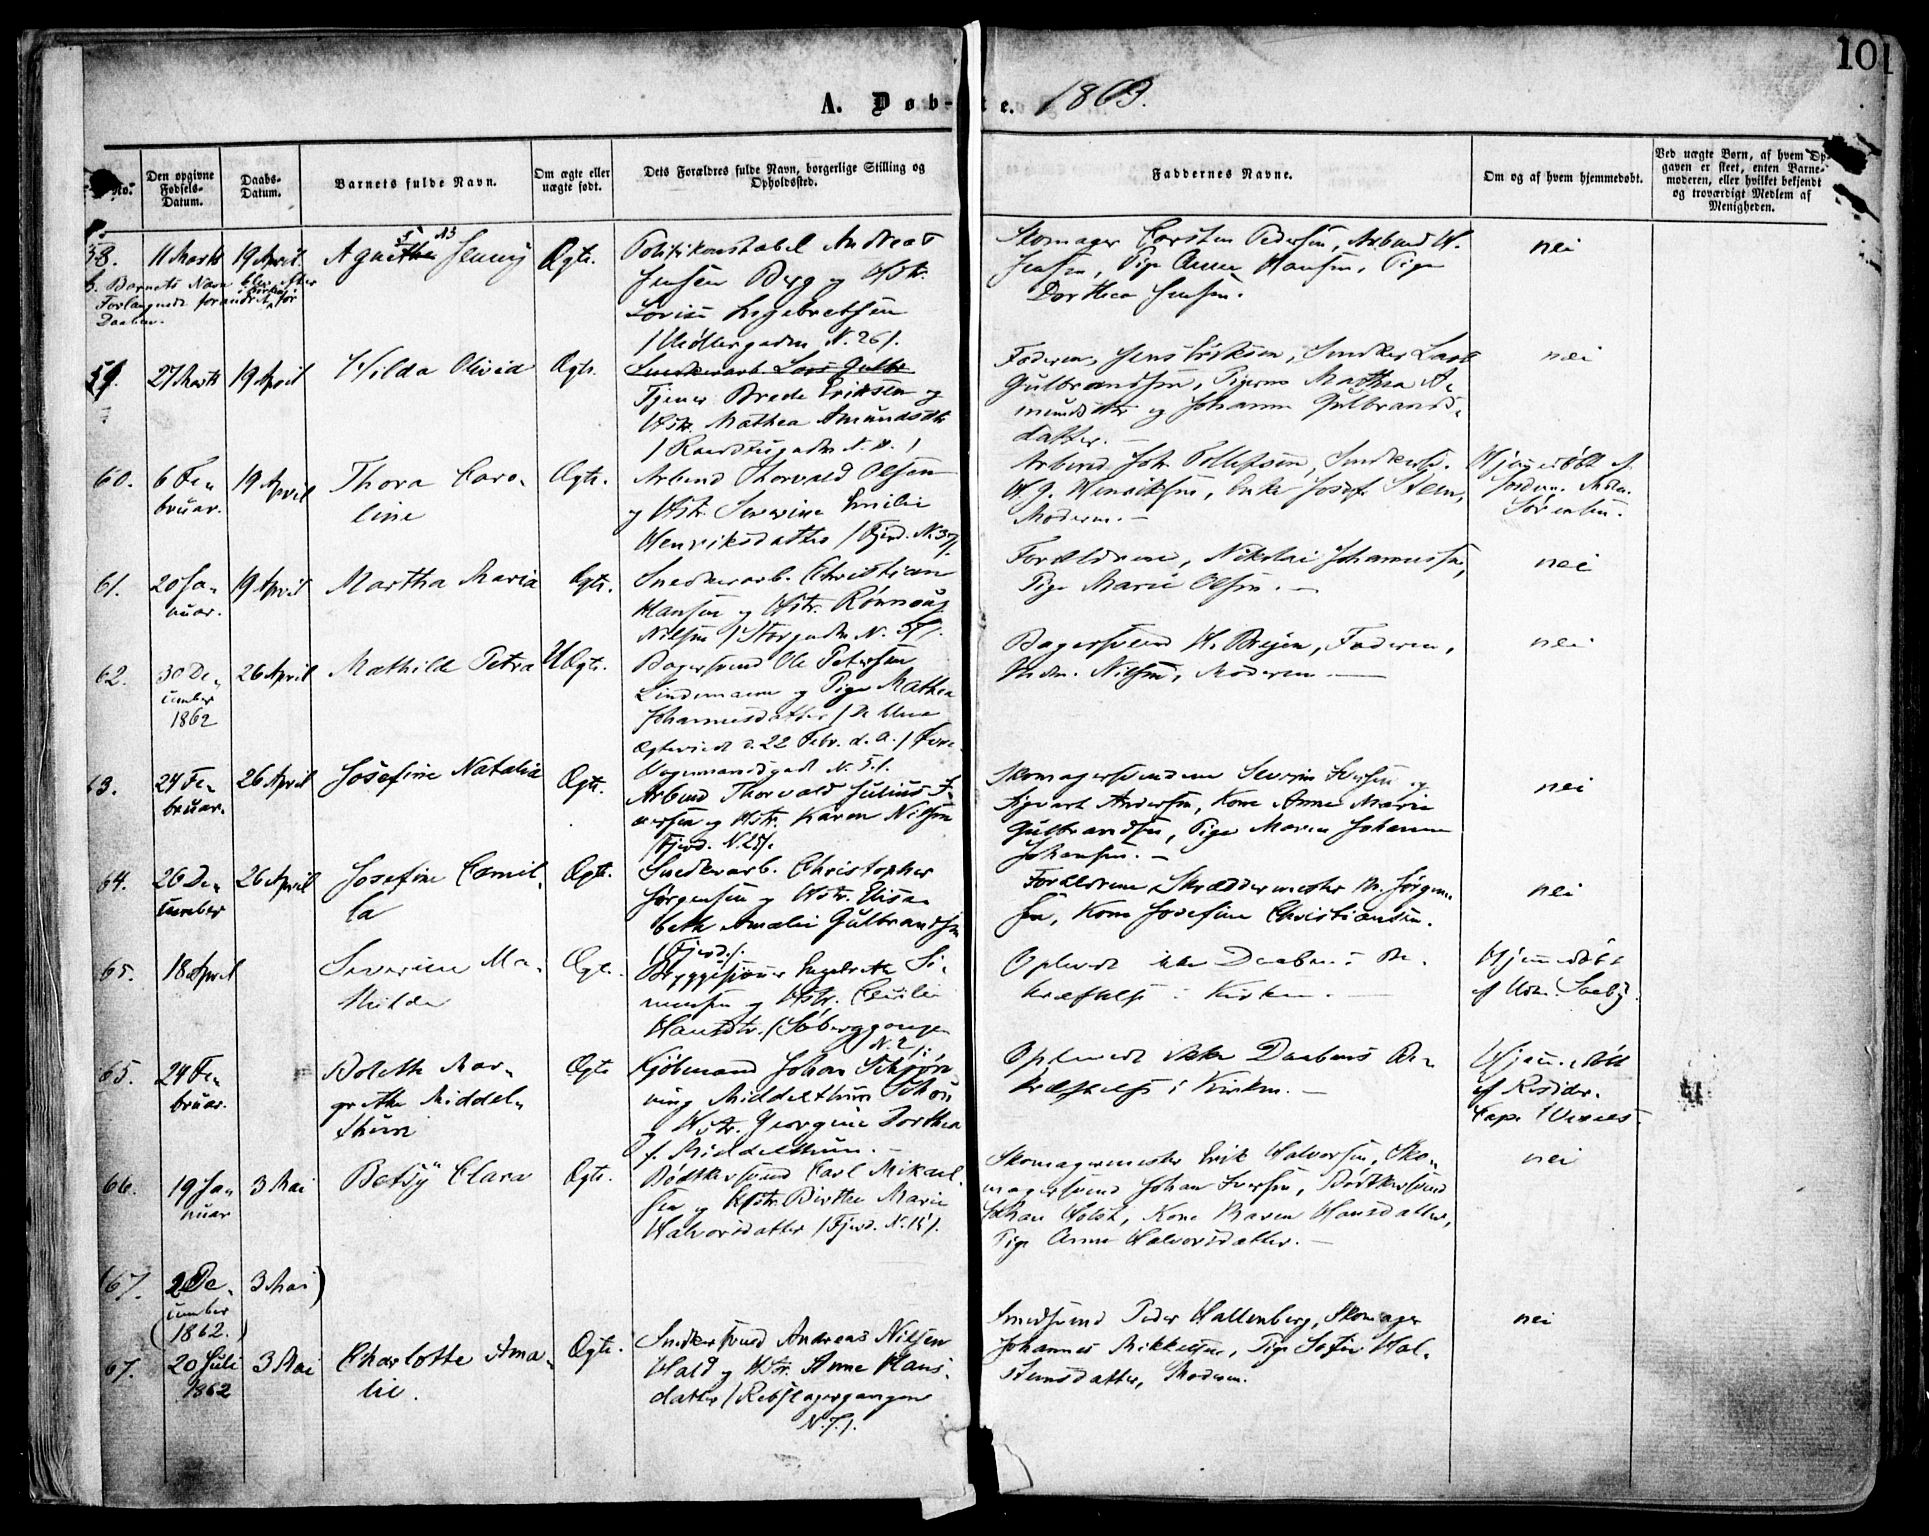 101
A. Døb- te. 1863.
No.
Den opgivne Fødsels-Datum.
Daabs-Datum.
Barnets fulde Navn.
Om ægte eller uægte født.
Dets Forældres fulde Navn, borgerlige Stilling og Opholdssted.
Faddernes Navne.
Om og af hvem hjemmedøbt.
Ved uægte Børn, af hvem Opgaven er skeet, enten Barnemoderen, eller hvilket bekjendt og troværdigt Medlem af Menigheden.
58. 11 Marts 19 April Jenny Ægte.
Barnets Navn blev efter
Forlangende forandret før
Daaben.
Politikonstabel Andreas
Jensen Berg og Hstr.
Lovise Ingebretsen
/Møllergaden N. 26/.
Skomager Carsten Pedersen, Arbmd H.
Jensen, Pige Anne Hansen, Pige
Dorthea Jensen.
nei
59. 27 Marts 19 April Hilda Olivia Ægte.
Snedkerarb. Lars Gulbr
Tjener Brede Eriksen og
Hstr. Mathea Amundsdtr
Faderen, Jens Eriksen, Snedker Lars
Gulbrandsen, Pigerne Mathea A-
mundsdtr og Johanne Gulbrands-
datter.
nei
60. 6 Fe-
bruar. 19 April Thora Caro-
line Ægte.
Arbmd Thorvald Olsen
og Hstr. Severine Emilie
Henriksdatter /Fjerd. N. 37/.
Arbmd Joh. Tollefsen, Snedkersv.
H. J. Henriksen, Enke Josef. Steen,
Moderen.
Hjemmedøbt af
Jordm. Mdm.
Sørensen.
61. 20 Ja-
nuar. 19 April Martha Maria Ægte.
Snedkerarb. Christian
Hansen og Hstr. Rønnaug
Nilsen /Storgaden N. 37/.
Forældrene, Nikolai Johannessen,
Pige Marie Olsen.
nei
62. 30 De-
cember
1862 26 April Mathilde Petra UÆgte.
Bagersvend Ole Petersen
Lindemann og Pige Mathea
Johannesdatter /De blive
Ægteviede d. 22 Febr. d. A./
Vognmandsgad N. 5/.
Bagersvend H. Brejen, Faderen,
Mdm. Nilsen, Moderen
nei
63. 24 Fe-
bruar. 26 April Josefine Natalia Ægte.
Arbmd Thorvald Julius I-
versen og Hstr. Karen Nilsen
/Fjerd. N. 25/.
Skomagersvendene Severin Iversen og
Sigvart Andersen, Kone Anne Marie
Gulbrandsen, Pige Maren Johanne
Johansen.
nei
64. 26 De-
cember 26 April Josefine Camil-
la Ægte.
Snedkerarb. Christopher
Jørgensen og Hstr. Elisa-
beth Amalie Gulbrandsen
/Fjerd./.
Forældrene, Skræddermester M. Jørgen-
sen, Kone Josefine Christiansen.
nei
65. 18 April Severine Ma-
thilde Ægte.
Bryggesjouer Engebreth Si-
mensen og Hstr. Cecilie
Hansdtr. /Søberggangen
N. 2/.
Oplevede ikke Daabens Be-
kræftelse i Kirken.
Hjemmedøbt
af Mdm. Saeby.
65. 24 Fe-
bruar. Bolette Mar-
grethe Middel-
thun Ægte
Kjøbmand Johan Schrøn
ning Middelthun Schou
og Hstr. Georgine Dorthea
f. Middelthun.
Oplevede ikke Daabens Be-
kræftelse i Kirken.
Hjemmedøbt
af Resider.
Cap. Wexels.
66. 19 Ja-
nuar 3 Mai Betsy Clara Ægte.
Bødkersvend Carl Mikael-
sen og Hstr. Birthe Marie
Halvorsdatter /Fjerd. N. 15/.
Skomagermester Erik Halvorsen, Sko-
magersvend Johan Iversen, Bødkersvend
Johan Holst, Kone Maren Hansdatter,
Pige Anne Halvorsdatter.
nei
(67. 2 De-
cember
(1862.) 3 Mai)
67. 20 Juli
1862 3 Mai Charlotte Ama-
lie. Ægte.
Snedkersvend Andreas Nilsen
Hald og Hstr. Anne Hans-
datter /Rebslagergangen
N. 7/.
Smedsvend Peder Hallenberg, Skomager
Johannes Mikkelsen, Pige Sofie Hal-
steinsdatter, Moderen.
nei